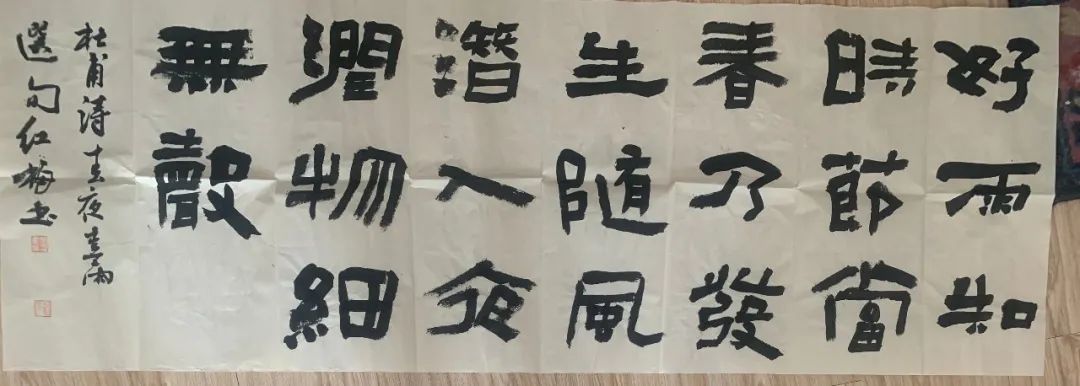 好雨知
時節當
春乃發
生随風
潜入夜
潤物細
無聲
杜甫詩春夜喜雨
選句红梅书